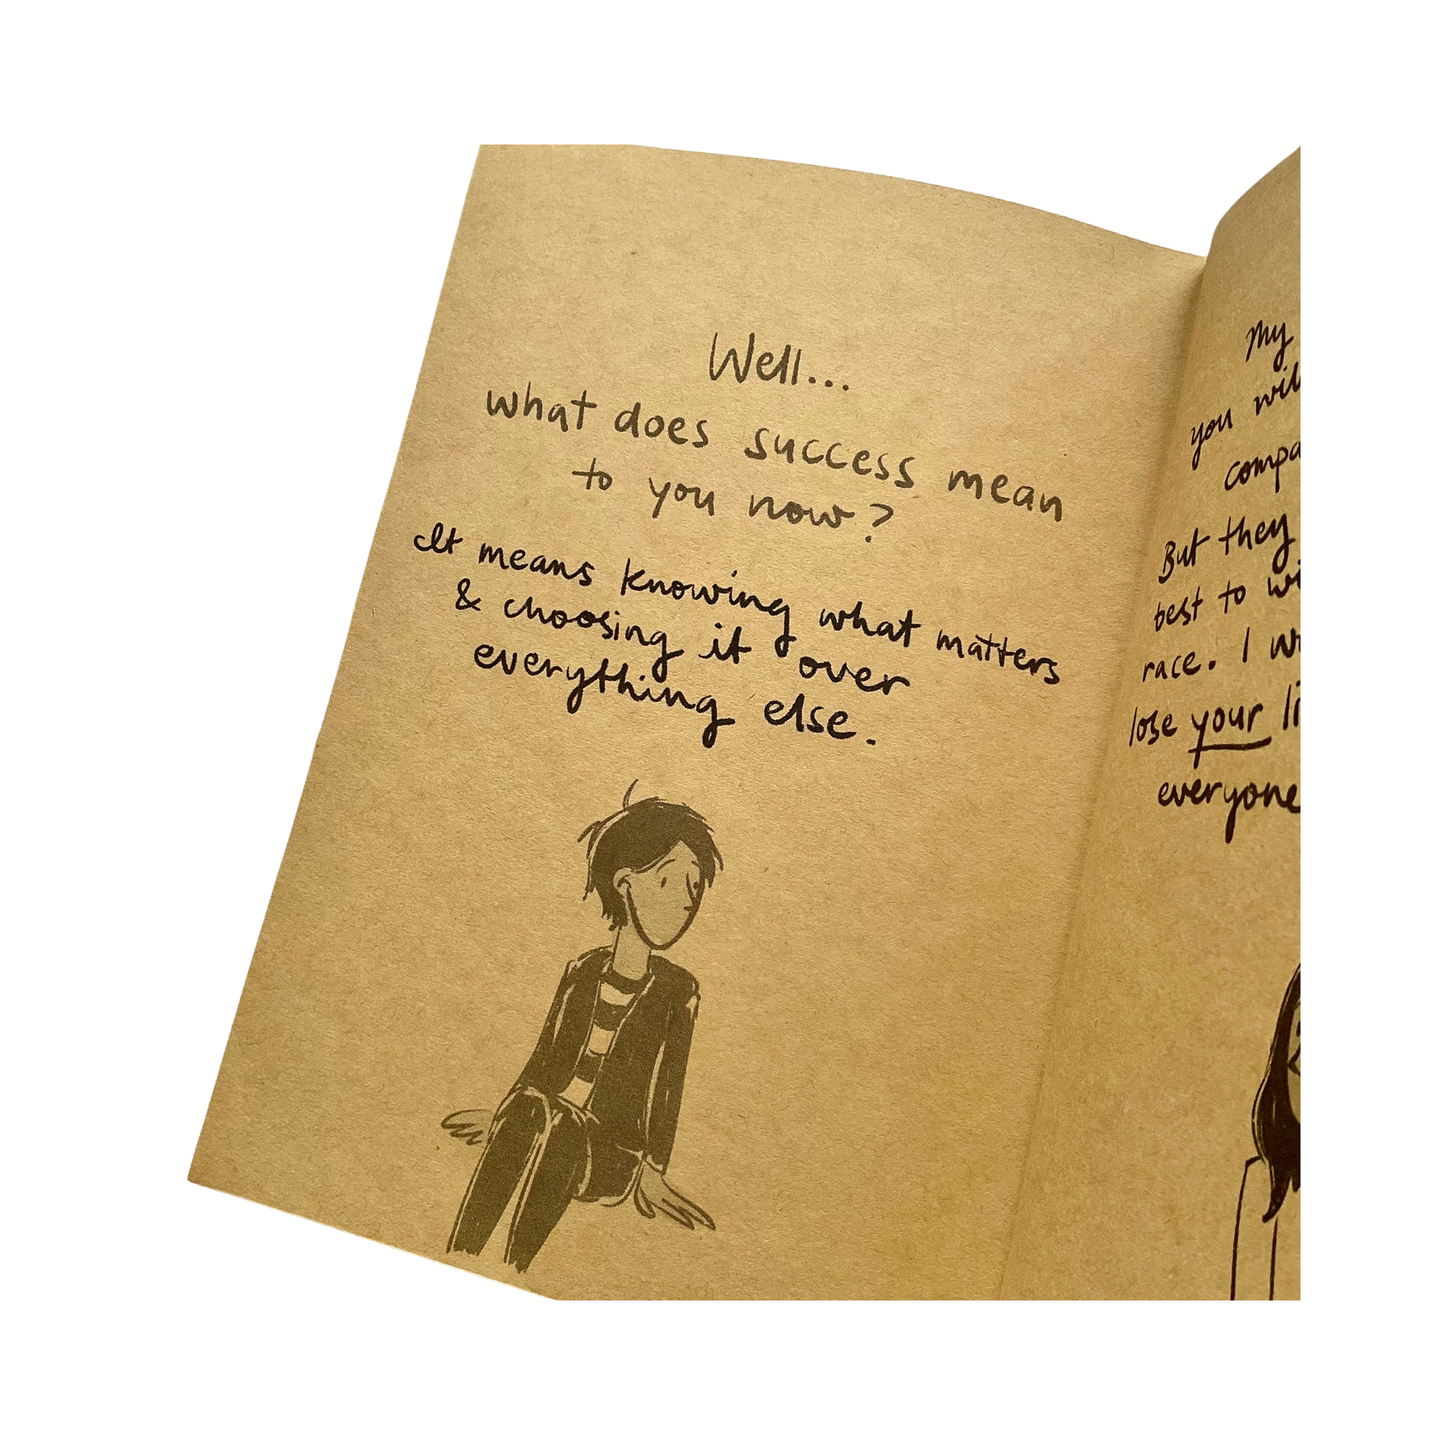 Well...
what does success mean
to you now?
It means knowing what matters
& choosing it over
everything else.
My
you
compa
But they
best to
race. I
lose your
everyone